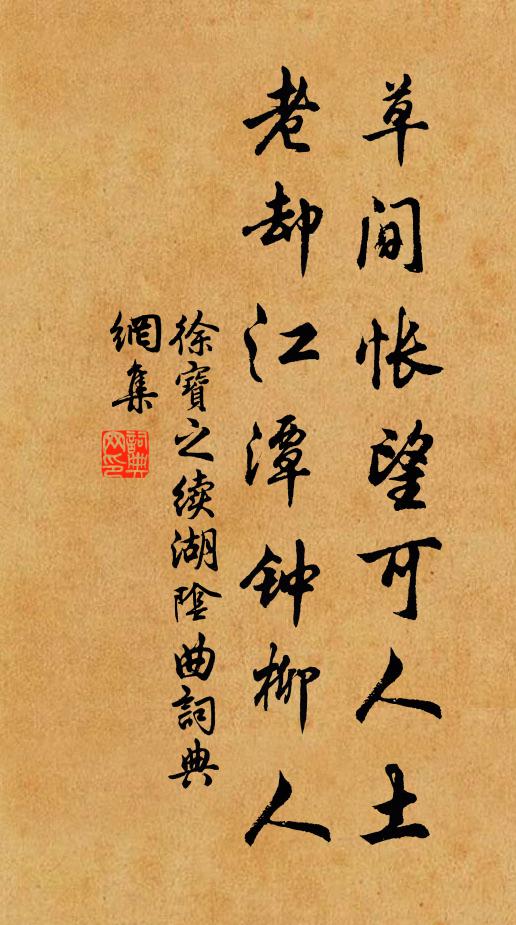 草间怅望可人土
老却江潭钟柳人
徐寶之续湖陰曲詞典
網集
詞典网印